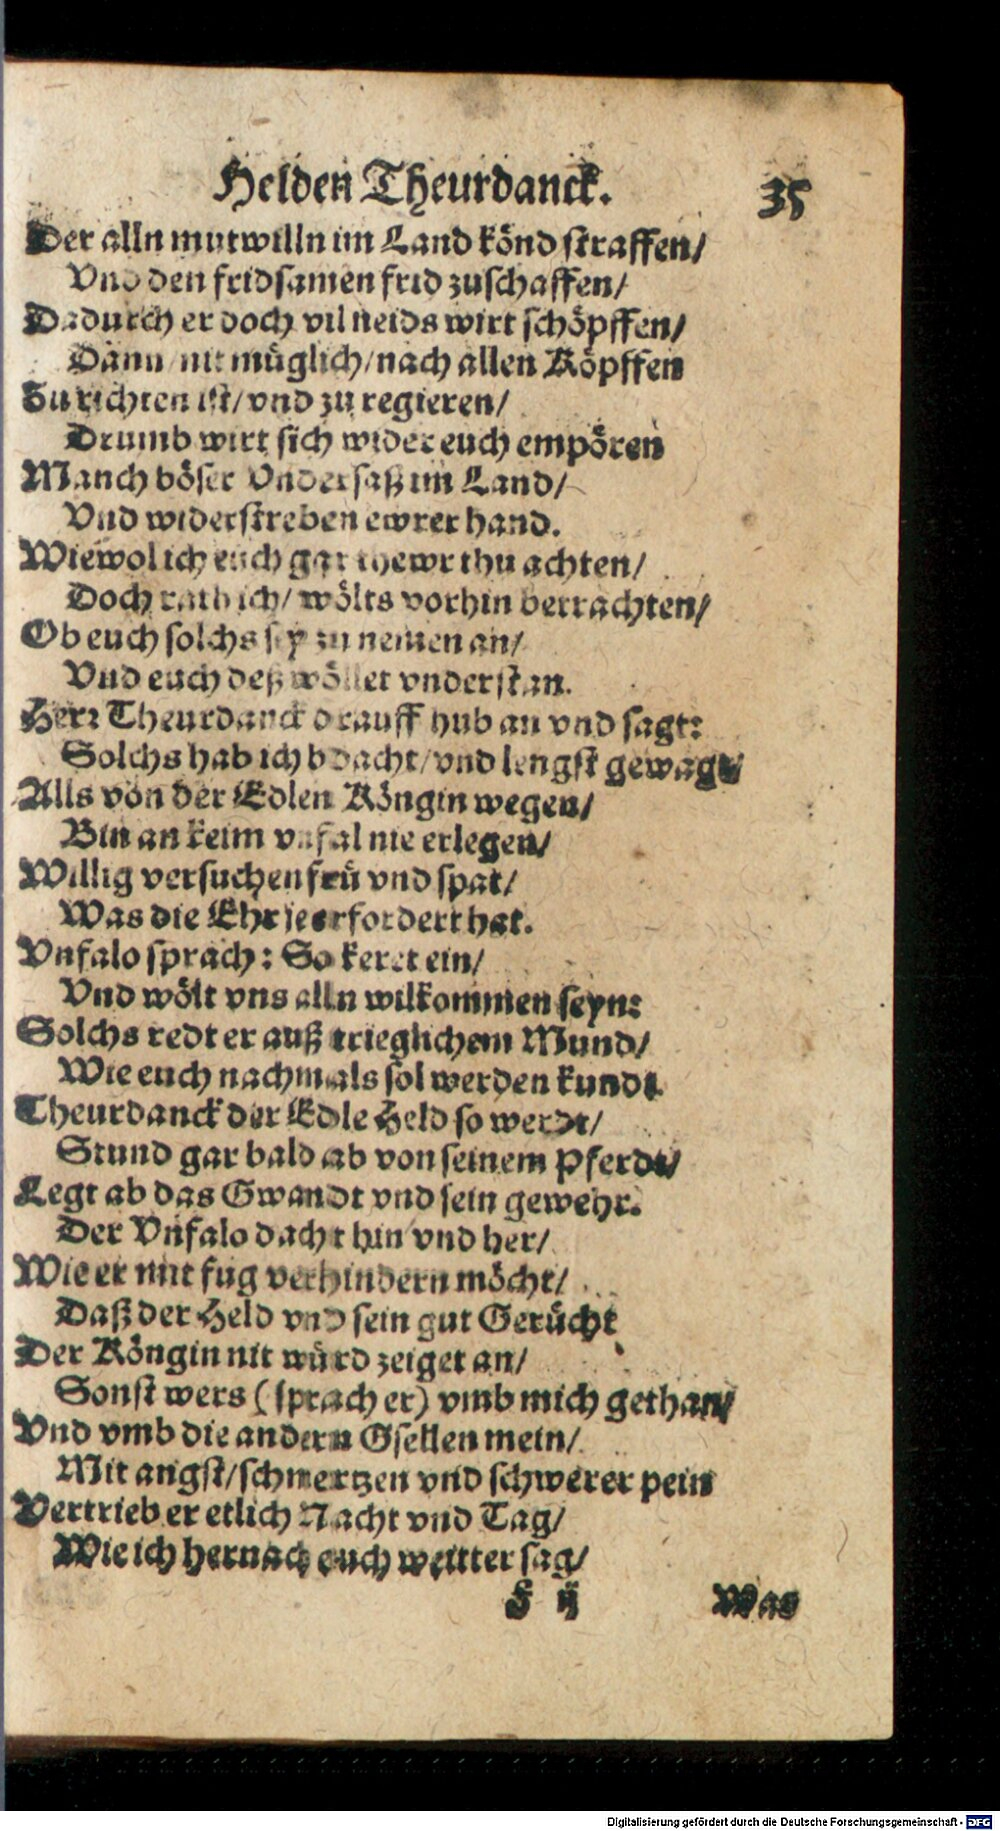 Helden Theurdanck. 35
Der alln mutwilln im Land könd straffen/
Vnd den fridsamen frid zuschaffen/
Dadurch er doch vil neids wirt schöpffen/
Dann nit müglich/nach allen Köpffen
Zu richten ist/vnd zu regieren/
Drumb wirt sich wider euch empören
Manch böser Vndersaß im Land/
Vnd widerstreben ewrer hand.
Wiewol ich euch gar thewr thu achten/
Doch rath ich/ wölts vorhin betrachten/
Ob euch solchs sey zu nemen an/
Vnd euch deß wöllet vnderstan.
Herr Theurdanck drauff hub an vnd sagt:
Solchs hab ich bdacht/vnd lengst gewagt/
Alls von der Edlen Köngin wegen/
Bin an keim vnfal nie erlegen/
Willig versuchen frü vnd spat/
Was die Ehr je erfordert hat.
Vnfalo sprach: So keret ein/
Vnd wölt vns alln wilkommen seyn:
Solchs redt er auß trieglichem Mund/
Wie euch nachmals sol werden kundt.
Theurdanck der Edle Held so werdt/
Stund gar bald ab von seinem Pferdt/
Legt ab das Gwandt vnd sein gewehr.
Der Vnfalo dacht hin vnd her/
Wie er mit fug verhindern möcht/
Daß der Held vnd sein gut Gerücht
Der Köngin nit würd zeiget an/
Sonst wers (sprach er) vmb mich gethan/
Vnd vmb die andern Gsellen mein/
Mit angst/schmertzen vnd schwerer pein
Vertrieb er etlich Nacht vnd Tag/
Wie ich hernach euch weitter sag/
F ij Was
Digitalisierung gefördert durch die Deutsche Forschungsgemeinschaft - DFG